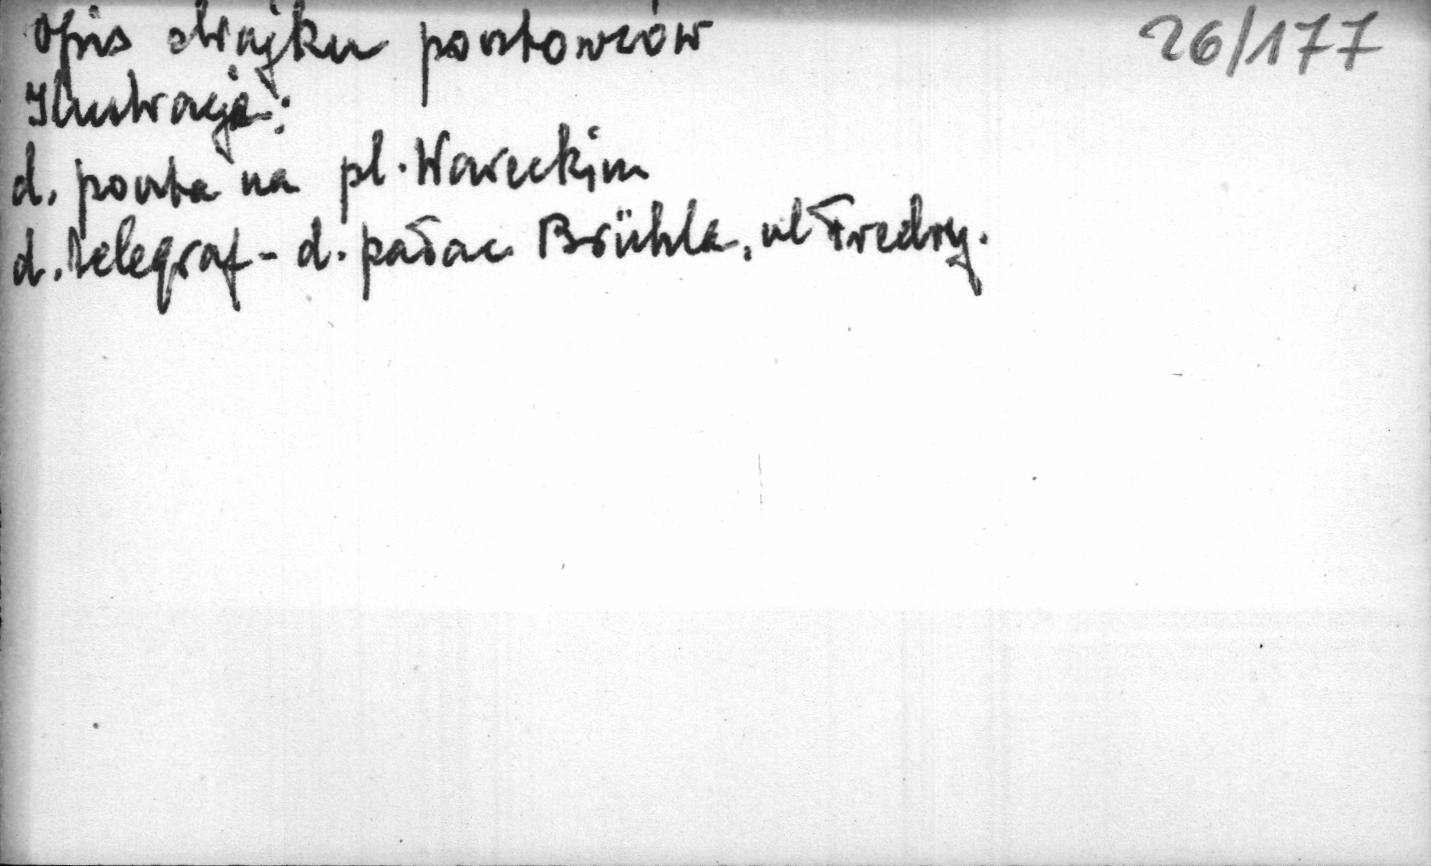 Opis strajku pocztowców 26/177
Ilustracja:
d. poczta na pl. Wareckim
d. telegraf - d. pałac Brühla, ul Fredry.